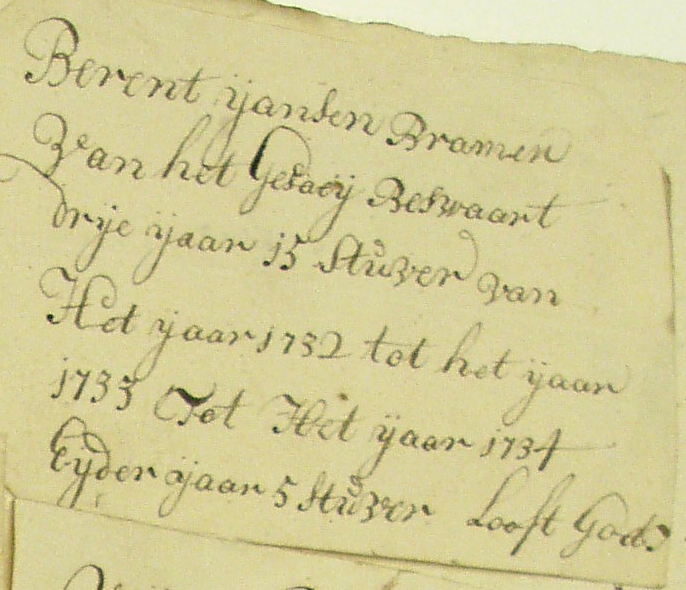 Berent ÿansen Bramen
Van het Gesaeÿ Beswaart
drÿe ÿaar 15 Stuver van
Het ÿaar 1732 tot het ÿaar
1733 Tot Het ÿaar 1734
Eÿder ÿaar 5 Stuver Looft God